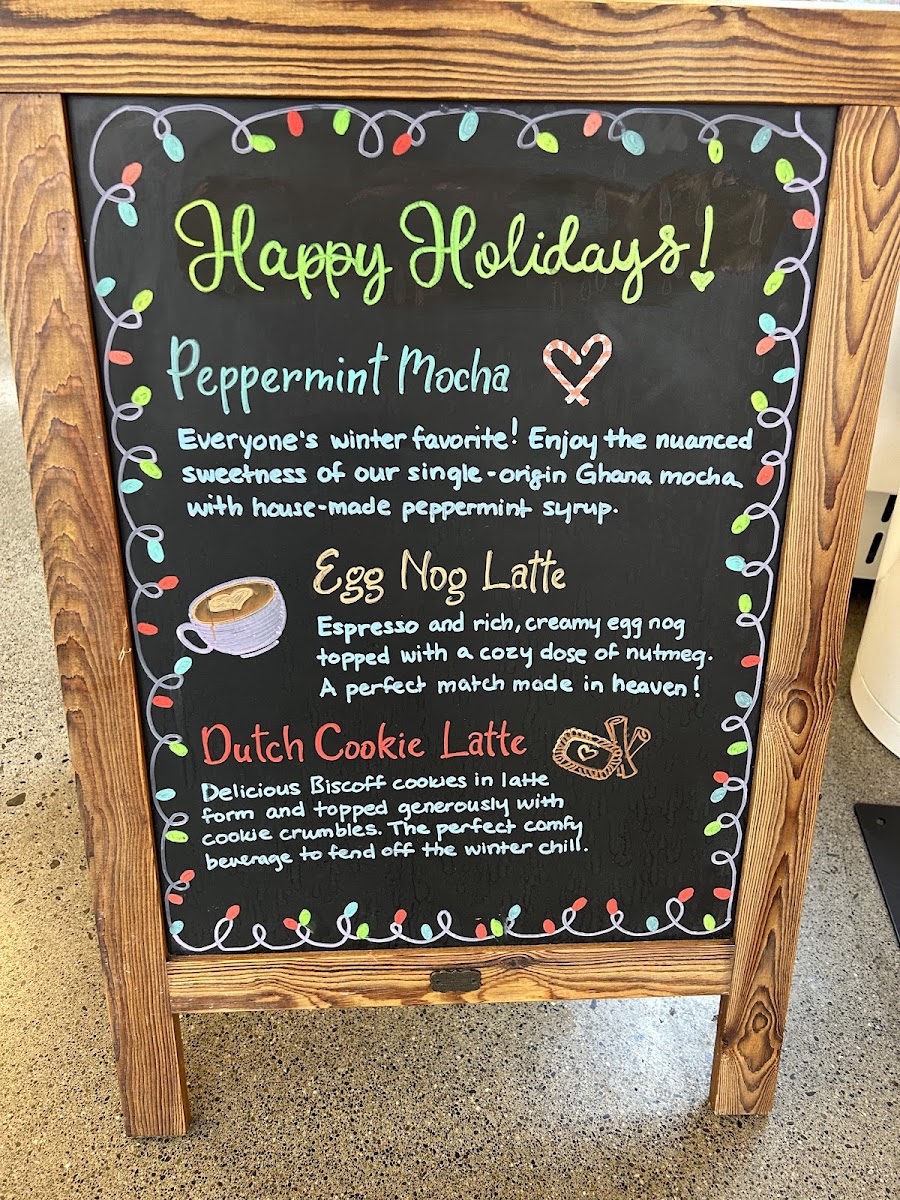 Happy Holidays!
Peppermint Mocha
Everyone's winter favorite! Enjoy the nuanced
sweetness of our single-origin Ghana mocha
with house-made peppermint syrup.
Egg Nog Latte
Espresso and rich, creamy egg nog
topped with a cozy dose of nutmeg.
A perfect match made in heaven!
Dutch Cookie Latte
Delicious Biscoff cookies in latte
form and topped generously with
cookie crumbles. The perfect comfy
beverage to fend off the winter chill.